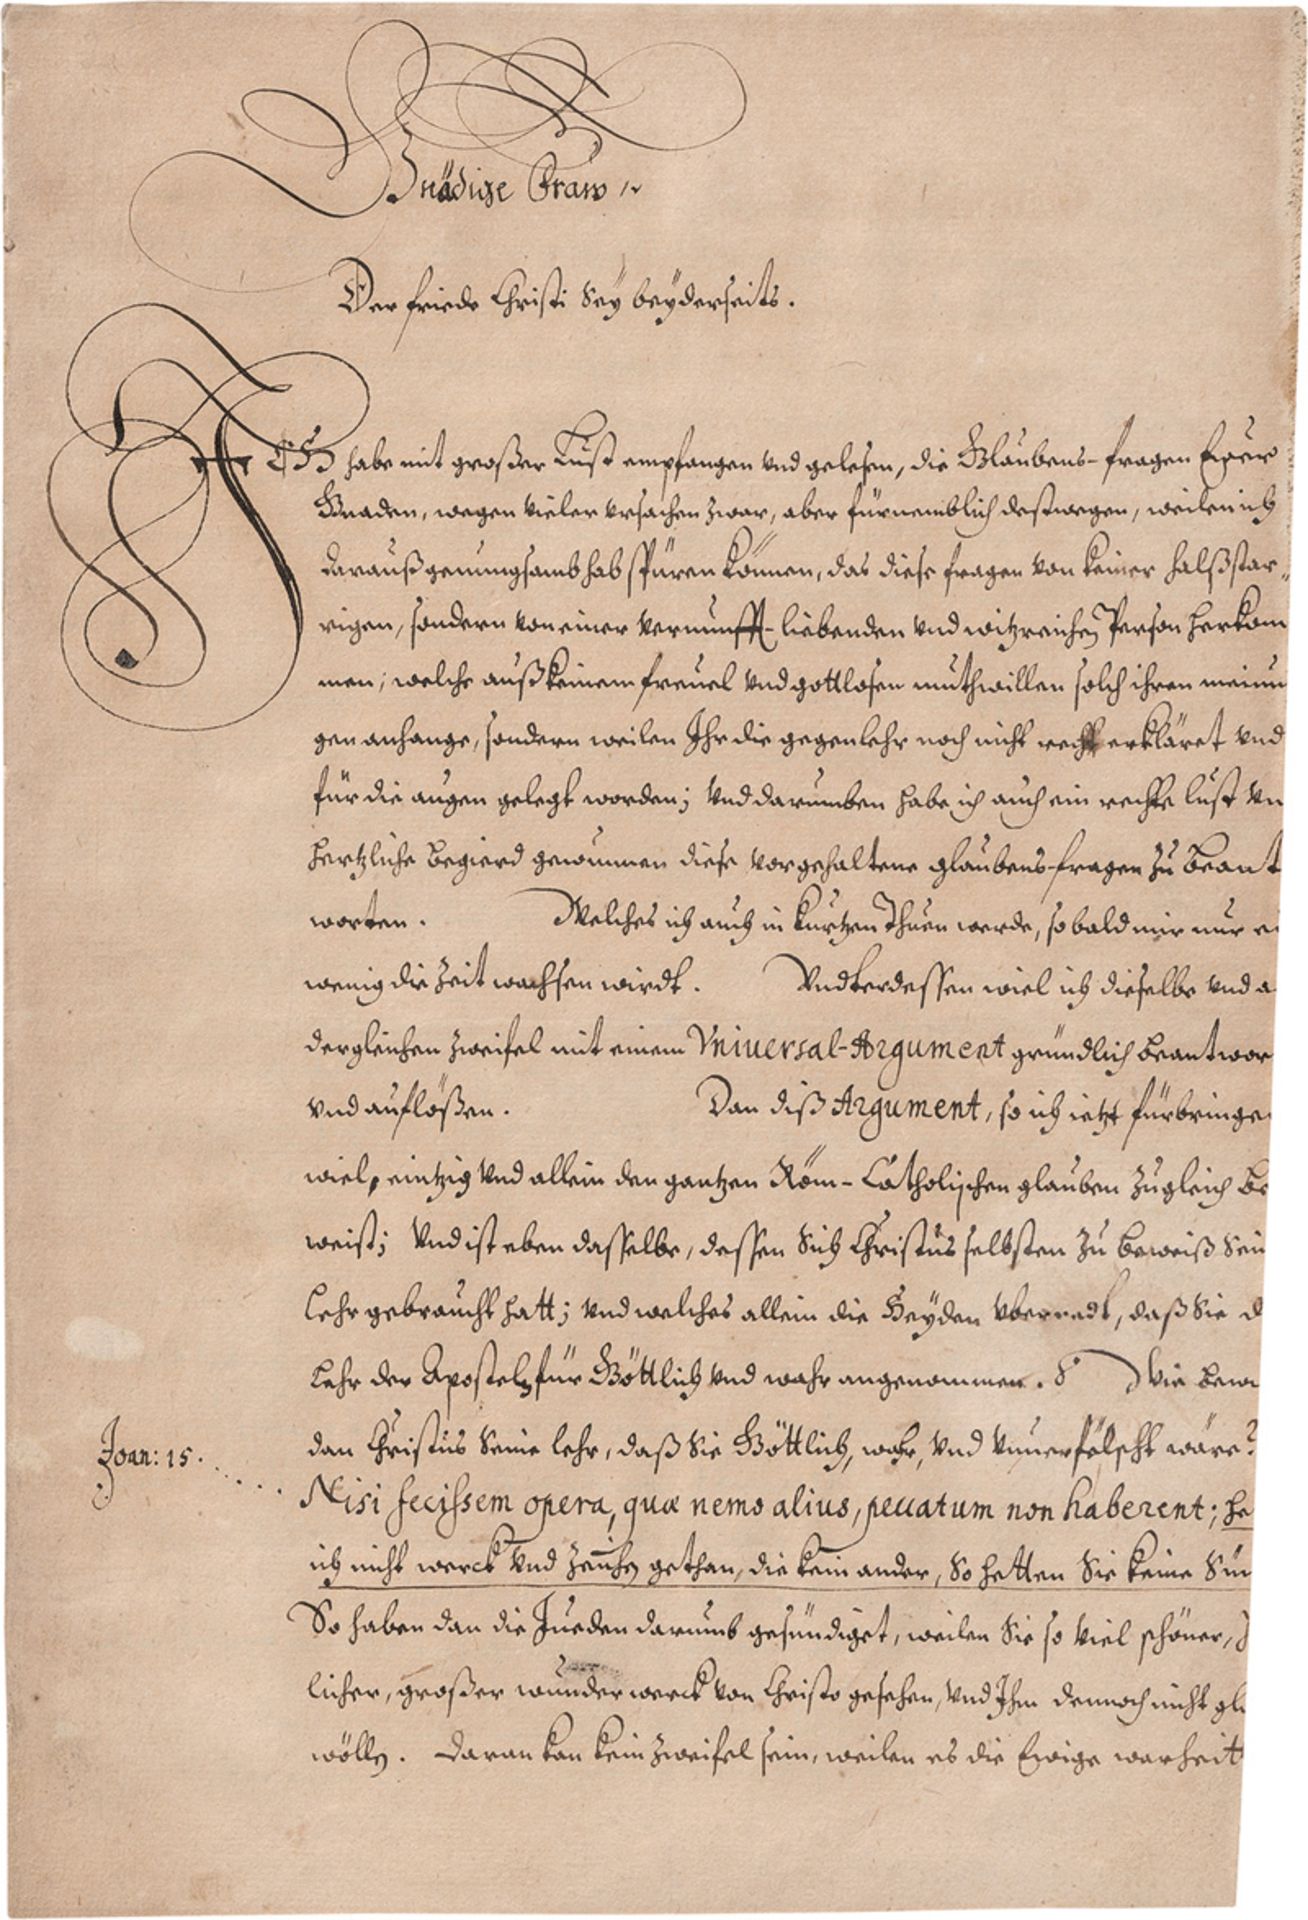 Gnädige Fraw
Der friede Christi Sey beyderseits.
ICH habe mit großer Lust empfangen vnd gelesen, die Glaubens-fragen Ewer
Gnaden, wegen vieler vrsachen zwar, aber fürnemblich destwegen, weilen ich
darauß genungsamb hab spüren können, das diese fragen von keiner halßstar-
rigen, sondern von einer vernunfft-liebenden vnd witzreichen Person herkom
men; welche auß keinem freuel vnd gottlosen muthwillen solch ihren meinun
gen anhange, sondern weilen Ihr die gegenlehr noch nicht recht erkläret vnd
für die augen gelegt worden; vnd darumben habe ich auch ein rechte lust vn
hertzliche begierd gewunnen diese vorgehaltene glaubens-fragen zu beant
worten. Welches ich auch in kurtzen Thuen werde, so bald mir nur ei
wenig die zeit wachsen wirdt. Vndterdessen wiel ich dieselbe vnd a
dergleichen zweifel mit einem Vniuersal-Argument gründlich beantwor
vnd auflößen. Dan diß Argument, so ich ietzt fürbringe
wiel, eintzig vnd allein den gantzen Röm-Catholischen glauben zugleich be
weist; vnd ist eben dasselbe, dessen Sich Christus selbsten zu beweiß Sein
Lehr gebraucht hatt; vnd welches allein die Heyden vberredt, daß Sie d
Lehr der Apostelen für Göttlich vnd wahr angenommen. Wie bew
dan Christus Seine lehr, daß Sie Göttlich, wahr, vnd vnuerfälscht wäre?
Joan: 15.
Nisi fecissem opera, quæ nemo alius, peccatum non haberent; he
ich nicht werck vnd zeichen gethan, die kein ander, So hetten Sie keine Sün
So haben dan die Jueden darumb gesündiget, weilen Sie so viel schöner,
licher, großer wunderwerck von Christo gesehen, vnd Ihm dennoch nicht gl
wöllen. Daran kan kein zweifel sein, weilen es die Ewige warheit